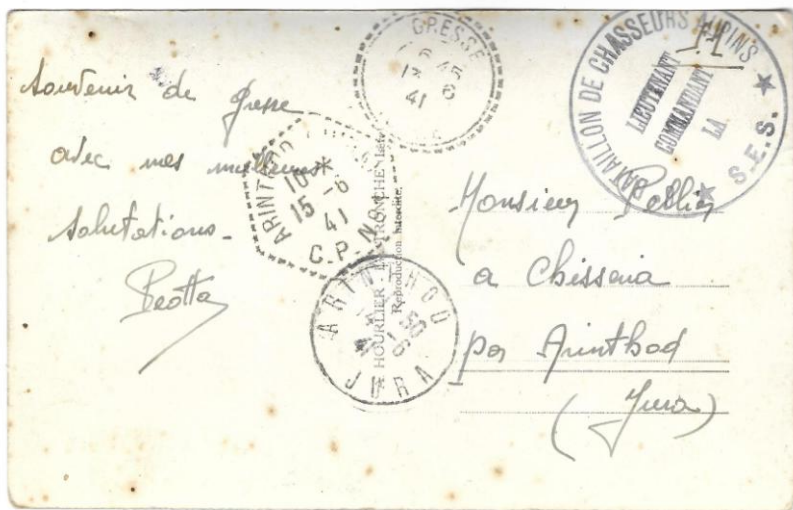 Souvenir de Gresse
avec mes meilleures
salutations.
GRESSE
41
BATAILLON DE CHASSEURS ALPINS
LIEUTENANT
COMMANDANT
LA
★ S.E.S. ★
16 *
15 -6
41
C.P. N°
ARINTHOD
-6
JURA
HOURLIER
LA TRONCHE
Reproduction interdite
Monsieur
a Chisseria
par Arinthod
(Jura)